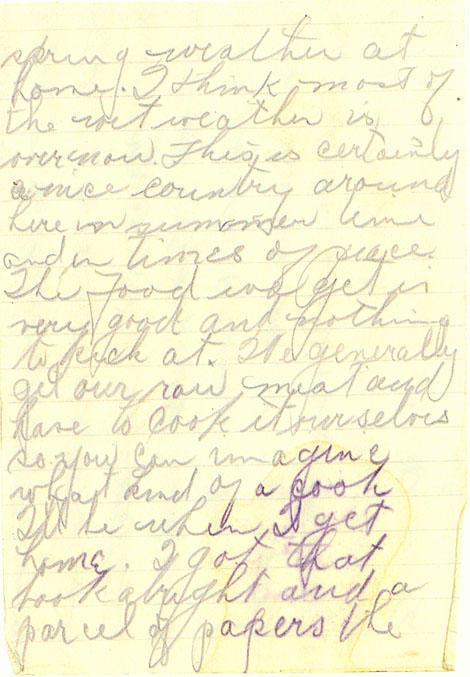 spring weather at
home. I think most of
the wet weather is
over now. This is certainly
a nice country around
here in summer time
and in times of peace.
The food we get is
very good and nothing
to kick at. We generally
get our raw meat and
have to cook it ourselvs
so you can imagine
what kind of a cook
Ill be when I get
home. I got that
book alright and a
parcel of papers the